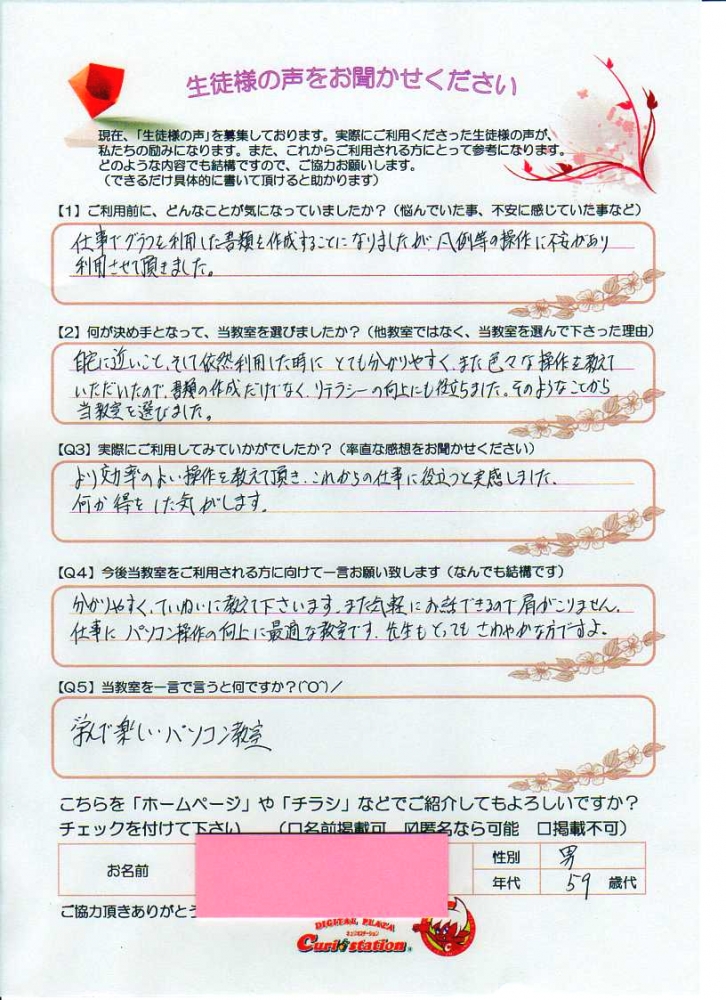 生徒様の声をお聞かせください
現在、「生徒様の声」を募集しております。実際にご利用くださった生徒様の声が、
私たちの励みになります。また、これからご利用される方にとって参考になります。
どのような内容でも結構ですので、ご協力お願いします。
（できるだけ具体的に書いて頂けると助かります）
【1】ご利用前に、どんなことが気になっていましたか？（悩んでいた事、不安に感じていた事など）
仕事でグラフを利用した書類を作成することになりましたが、凡例等の操作に不安があり
利用させて頂きました。
【2】何が決め手となって、当教室を選びましたか？（他教室ではなく、当教室を選んで下さった理由）
自宅に近いこと、そして依然利用した時に とても分かりやすく、また色々な操作を教えて
いただいたので、書類の作成だけでなく、リテラシーの向上にも役立ちました。そのようなことから
当教室を選びました。
【Q3】実際にご利用してみていかがでしたか？（率直な感想をお聞かせください）
より効率のよい操作を教えて頂き、これからの仕事に役立つと実感しました。
何か得をした気がします。
【Q4】今後当教室をご利用される方に向けて一言お願い致します（なんでも結構です）
分かりやすく、ていねいに教えて下さいます。また気軽にお話できるので肩がこりません。
仕事に パソコン操作の向上に最適な教室です。先生もとってもさわやかな方ですよ。
【Q5】当教室を一言で言うと何ですか？(^O^)／
学んで楽しい パソコン教室
こちらを「ホームページ」や「チラシ」などでご紹介してもよろしいですか？
チェックを付けて下さい （□名前掲載可 ☑匿名なら可能 □掲載不可）
お名前
性別 男
年代 59 歳代
ご協力頂きありがとう
DIGITAL PLAZA
キュリオステーション
Curio station